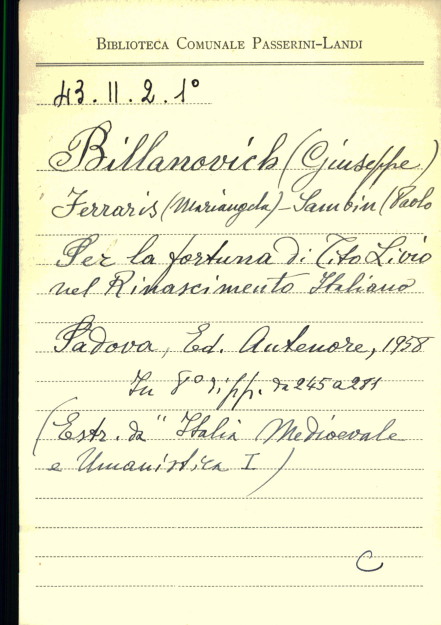 BIBLIOTECA COMUNALE PASSERINI-LANDI
43. II. 2. 1º
Billanovich (Giuseppe)
Ferraris (Mariangela) - Sambin (Paolo
Per la fortuna di Tito Livio
nel Rinascimento Italiano
Padova, Ed. Antenore, 1958
In 8º di pp. da 245 a 281
(Estr. da "Italia Medioevale
e Umanistica I)
C